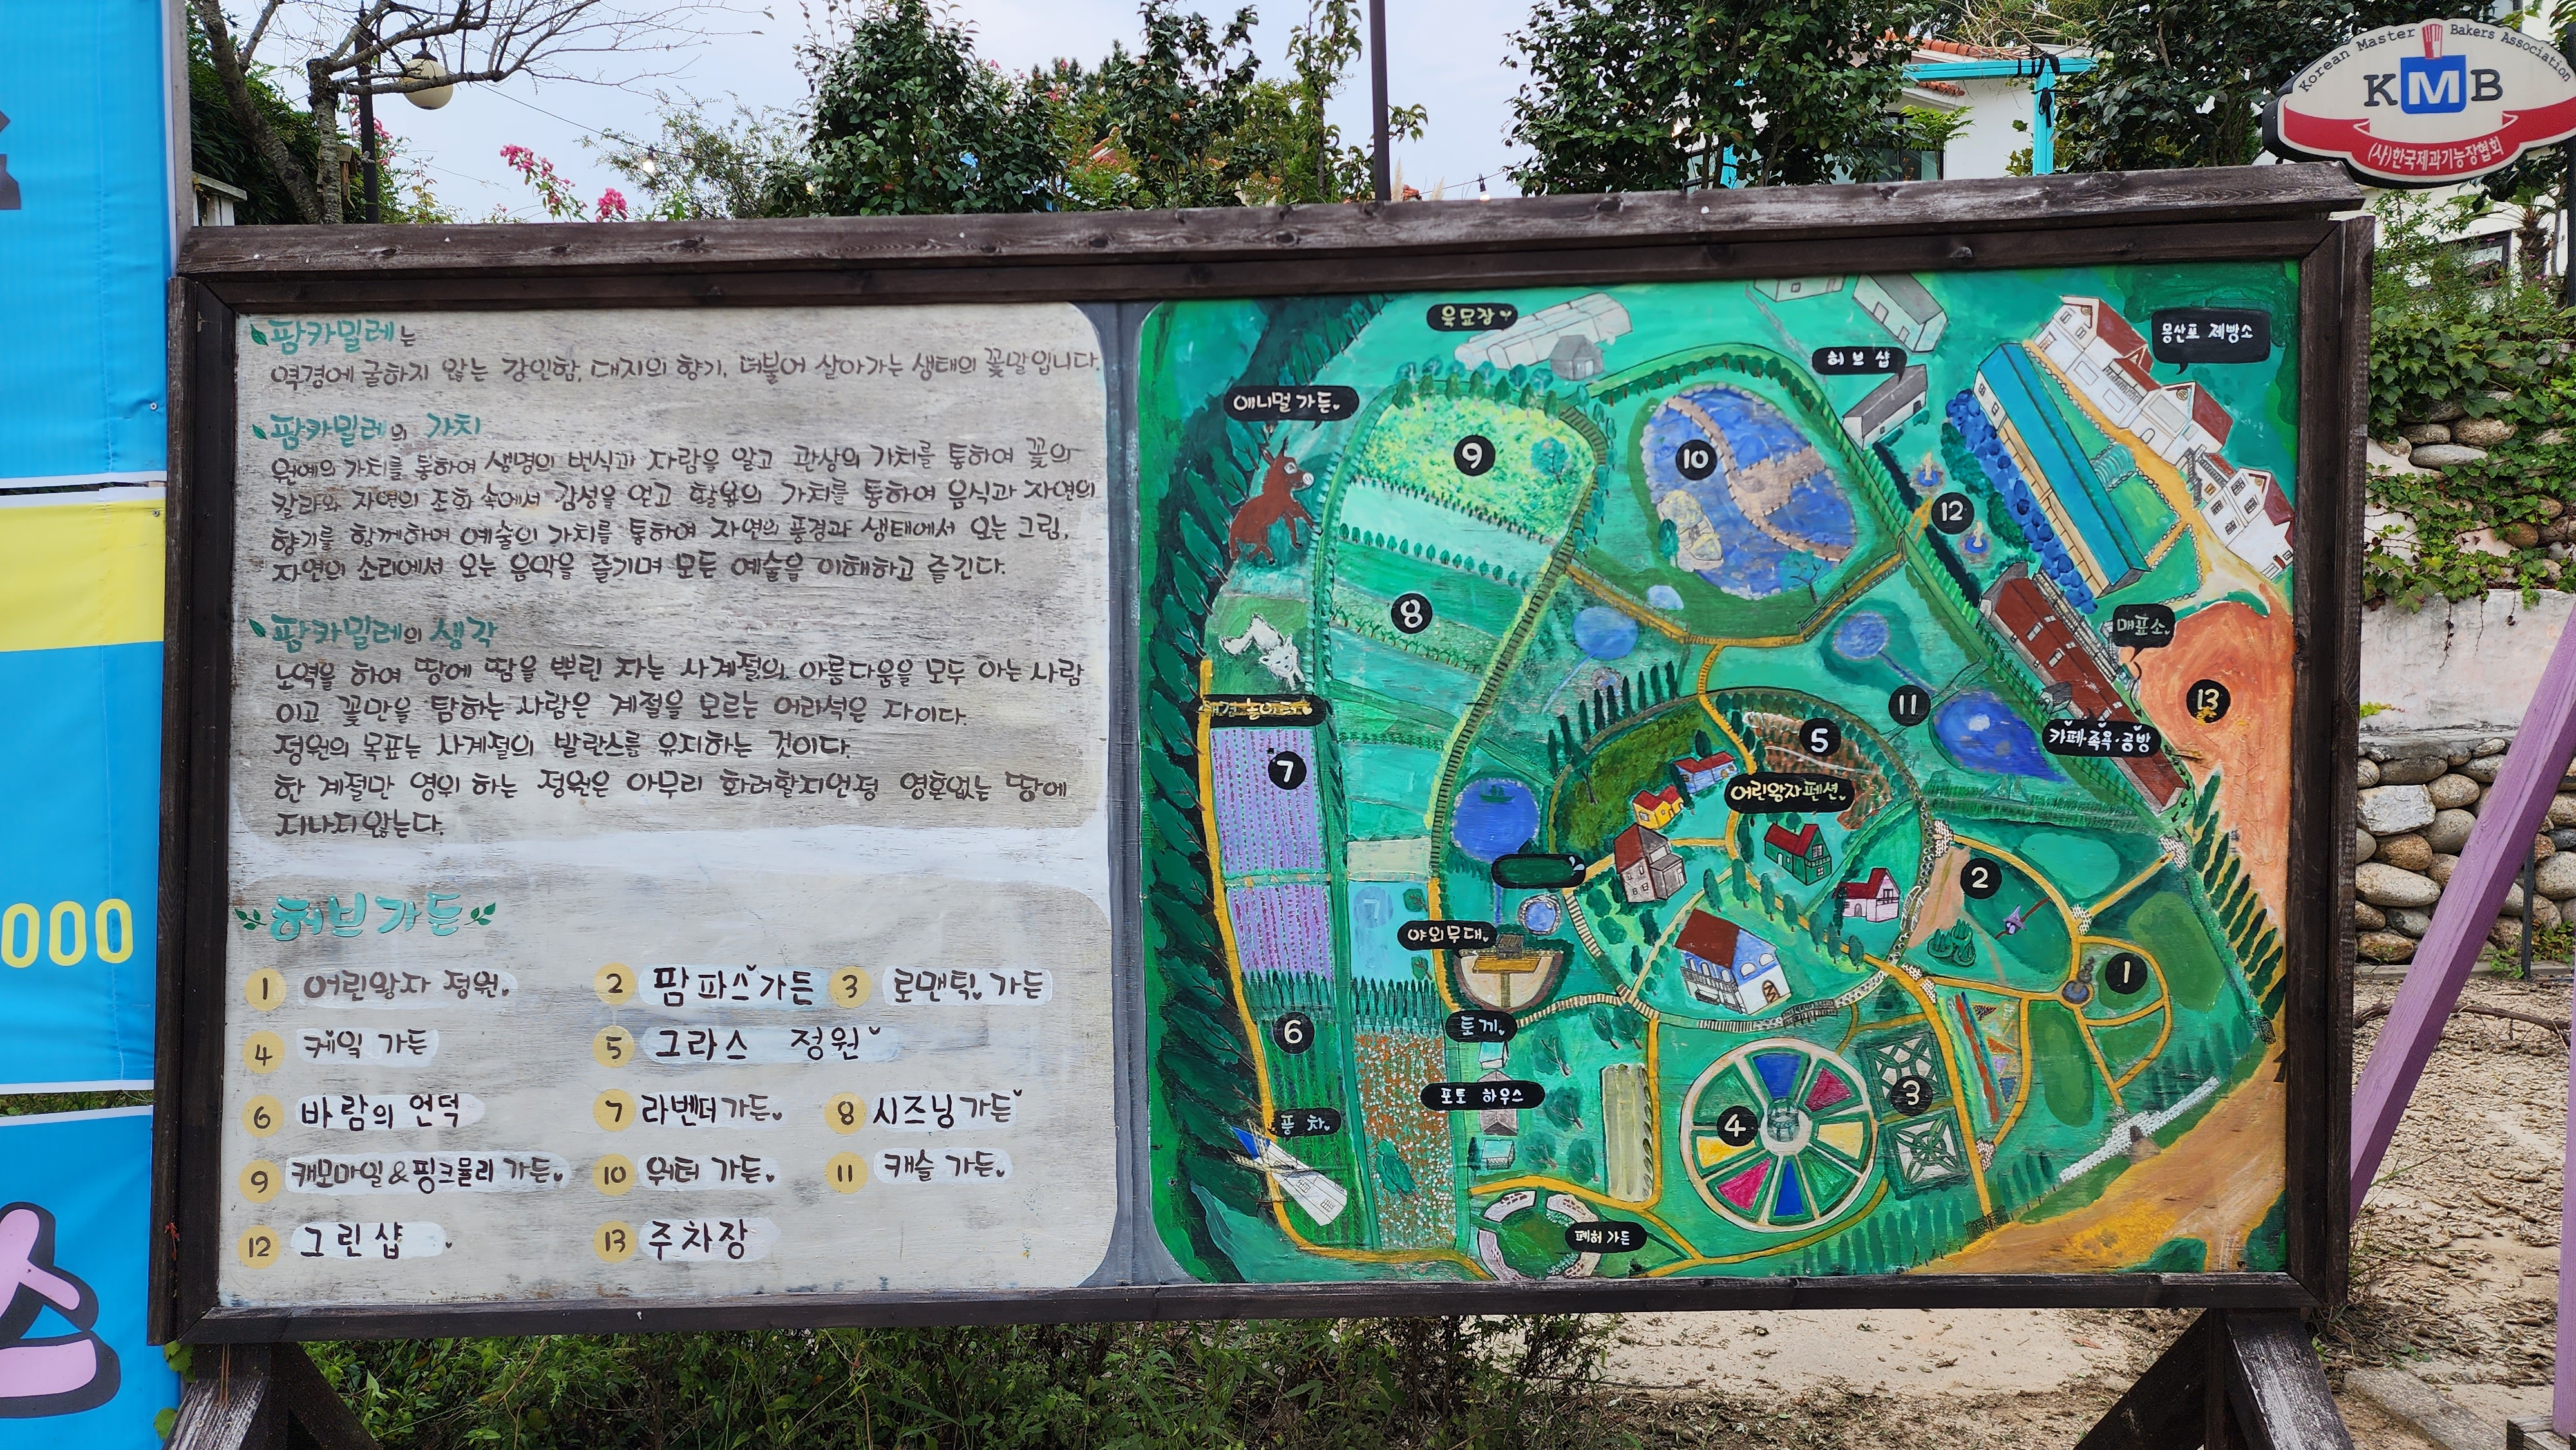 팜카밀레는
역경에 굴하지 않는 강인함, 대지의 향기, 더불어 살아가는 생태의 꽃말입니다.
팜카밀레의 가치
원예의 가치를 통하여 생명의 번식과 자람을 알고 관상의 가치를 통하여 꽃의
칼라와 자연의 조화 속에서 감성을 얻고 활용의 가치를 통하여 음식과 자연의
향기를 함께하며 예술의 가치를 통하여 자연의 풍경과 생태에서 오는 그림,
자연의 소리에서 오는 음악을 즐기며 모든 예술을 이해하고 즐긴다.
팜카밀레의 생각
노역을 하여 땅에 땀을 뿌린 자는 사계절의 아름다움을 모두 아는 사람
이고 꽃만을 탐하는 사람은 계절을 모르는 어리석은 자이다.
정원의 목표는 사계절의 발란스를 유지하는 것이다.
한 계절만 영위 하는 정원은 아무리 화려할지언정 영혼없는 땅에
지나지 않는다.
허브가든
1 어린왕자 정원
2 팜파스가든
3 로맨틱 가든
4 케잌 가든
5 그라스 정원
6 바람의 언덕
7 라벤더가든
8 시즈닝가든
9 캐모마일&핑크뮬리 가든
10 워터 가든
11 캐슬 가든
12 그린샵
13 주차장
육묘장
몽산포 제빵소
허브 샵
애니멀 가든
9
10
12
8
매표소
13
11
카페·족욕·공방
7
5
어린왕자펜션
2
야외무대
1
토끼
6
포토 하우스
3
4
풍차
폐허 가든
Korean Master Bakers Association
KMB
(사)한국제과기능장협회
000
스